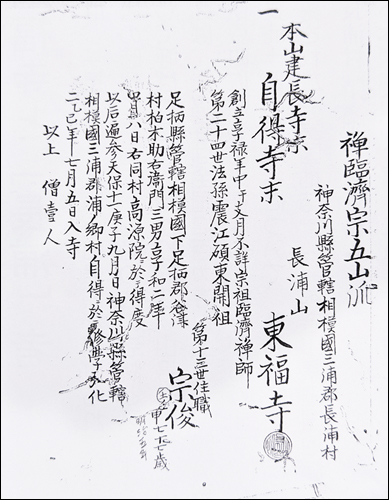 禅臨濟宗五山派
神奈川縣管轄相模國三浦郡長浦村
長浦山
東福寺
一 本山建長寺末
自得寺末
創立享禄年中年月不詳宗祖臨濟禅師
第二十四世法孫震江碩東開祖
第十三世住職
宗俊
七十七歳
足柄縣管轄相模國下足柄郡谷津
村柏木助右衛門三男享和二年
月八日右同村高源院於得度
以后遍参天保十一庚子九月日神奈川縣管轄
相模國三浦郡浦ノ郷村自得於修學
二乙巳年十七月五日入寺
以上 僧壹人